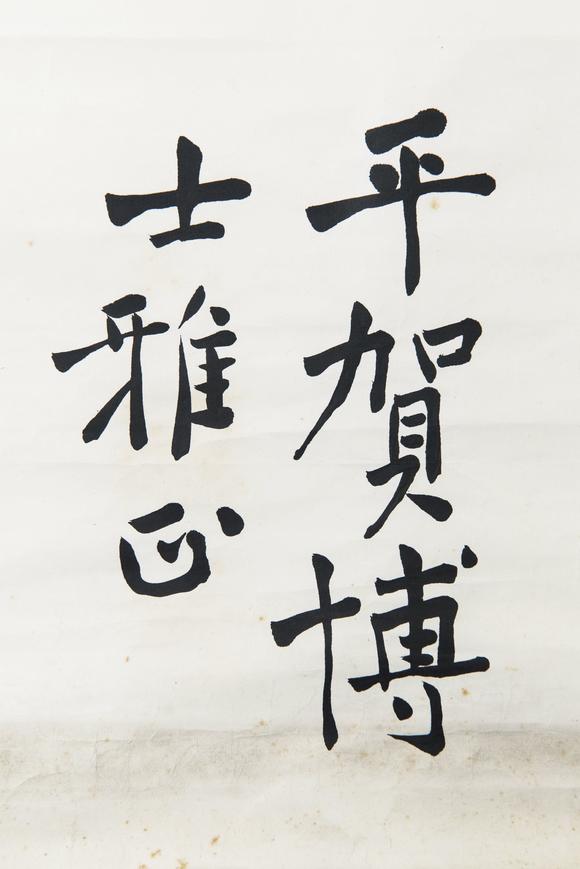 平賀博
士雅正